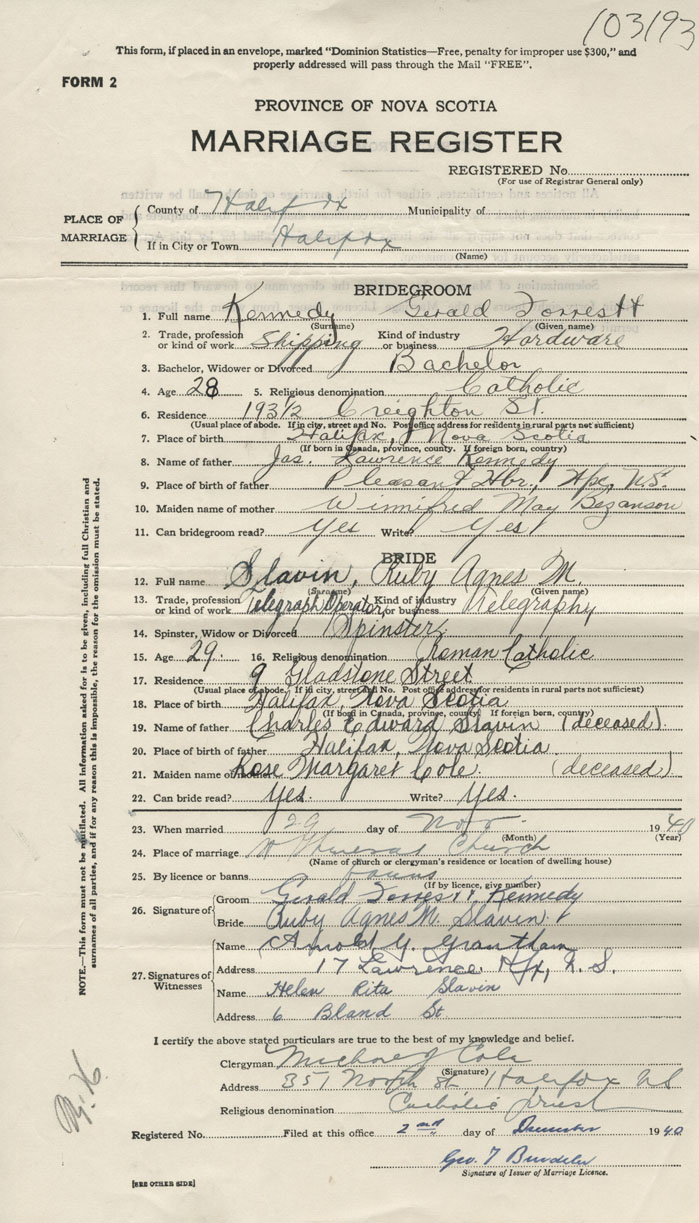 103193
This form, if placed in an envelope, marked "Dominion Statistics—Free, penalty for improper use $300," and
properly addressed will pass through the Mail "FREE".
FORM 2
PROVINCE OF NOVA SCOTIA
MARRIAGE REGISTER
REGISTERED No.
(For use of Registrar General only)
PLACE OF MARRIAGE
County of Halifax Municipality of
If in City or Town Halifax
(Name)
BRIDEGROOM
1. Full name Kennedy Gerald Forrestt
(Surname) (Given name)
2. Trade, profession or kind of work Shipping Kind of industry or business Hardware
3. Bachelor, Widower or Divorced Bachelor
4. Age 28 5. Religious denomination Catholic
6. Residence 193 1/2 Creighton St.
(Usual place of abode. If in city, street and No. Post office address for residents in rural parts not sufficient)
7. Place of birth Halifax, Nova Scotia
(If born in Canada, province, county. If foreign born, country)
8. Name of father Jas. Lawrence Kennedy
9. Place of birth of father Pleasant Hbr., Hfx, N.S.
10. Maiden name of mother Winnifred May Bezanson
11. Can bridegroom read? Yes Write? Yes
BRIDE
12. Full name Slavin, Ruby Agnes M.
(Surname) (Given name)
13. Trade, profession or kind of work Telegraph Operator Kind of industry or business Telegraphy
14. Spinster, Widow or Divorced Spinster
15. Age 29. 16. Religious denomination Roman Catholic
17. Residence 9 Gladstone Street
(Usual place of abode. If in city, street and No. Post office address for residents in rural parts not sufficient)
18. Place of birth Halifax, Nova Scotia
(If born in Canada, province, county. If foreign born, country)
19. Name of father Charles Edward Slavin (deceased).
20. Place of birth of father Halifax, Nova Scotia
21. Maiden name of mother Rose Margaret Cole. (deceased)
22. Can bride read? Yes. Write? Yes.
23. When married 29 day of Nov. 1940
(Month) (Year)
24. Place of marriage Church
(Name of church or clergyman's residence or location of dwelling house)
25. By licence or banns banns
(If by licence, give number)
26. Signature of
Groom Gerald Forrestt Kennedy
Bride Ruby Agnes M. Slavin
27. Signatures of Witnesses
Name Arnold G. Grantham
Address 17 Lawrence Hfx, N.S.
Name Helen Rita Slavin
Address 6 Bland St
I certify the above stated particulars are true to the best of my knowledge and belief.
Clergyman Michael J Cole
(Signature)
Address 351 North St Halifax NS
Religious denomination Catholic Priest
Registered No. Filed at this office 2nd day of December 1940
Geo. T
Signature of Issuer of Marriage Licence.
[SEE OTHER SIDE]
NOTE.—This form must not be mutilated. All information asked for is to be given, including full Christian and
surnames of all parties, and if for any reason this is impossible, the reason for the omission must be stated.